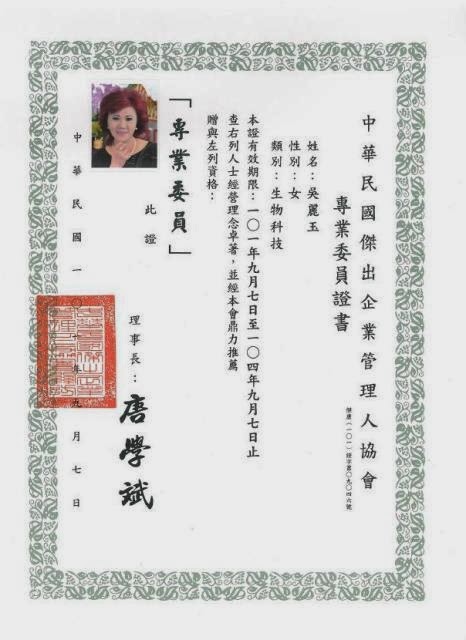 中華民國傑出企業管理人協會
專業委員證書
傑唐(一〇一)證字第〇九〇四六號
姓名：吳麗玉
性別：女
類別：生物科技
本證有效期限：一〇一年九月七日至一〇四年九月七日止
查右列人士經營理念卓著，並經本會鼎力推薦
贈與左列資格：
「專業委員」
此證
理事長：唐學斌
中華民國一〇一年九月七日